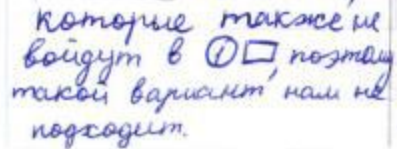 которые также не
войдут в ① □, поэтому
такой вариант нам не
подходит.